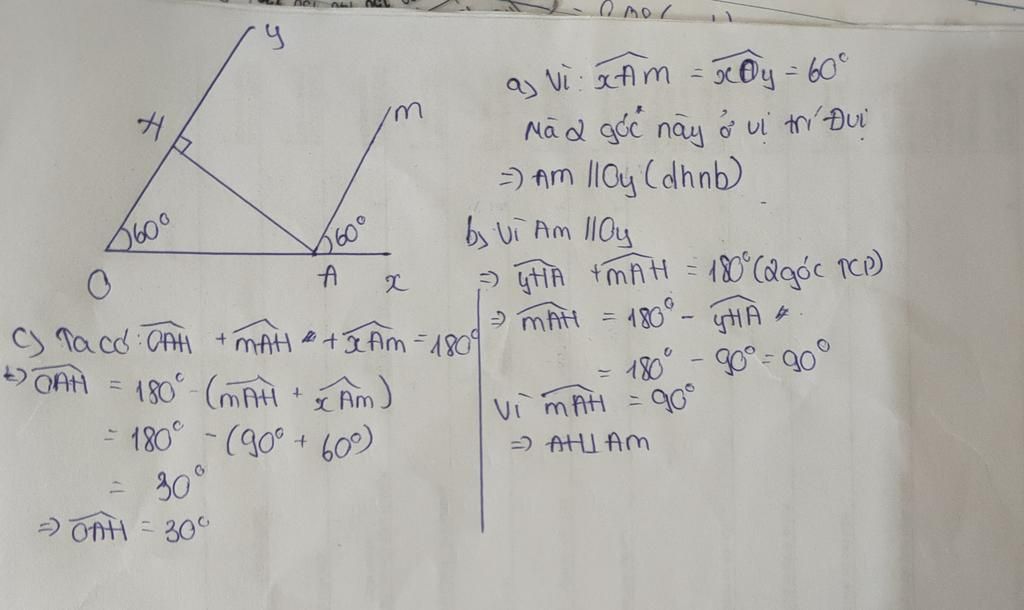 y
H
m
60°
60°
O
A
x
a) Vì: xAm = xOy = 60°
Mà 2 góc này ở vị trí Đvị
=> Am // Oy (dhnb)
b) Vì Am // Oy
=> yHA + mAH = 180° (2 góc TCP)
=> mAH = 180° - yHA
= 180° - 90° = 90°
Vì mAH = 90°
=> AH ⊥ Am
c) Ta có: OAH + mAH + xAm = 180°
=> OAH = 180° - (mAH + xAm)
= 180° - (90° + 60°)
= 30°
=> OAH = 30°